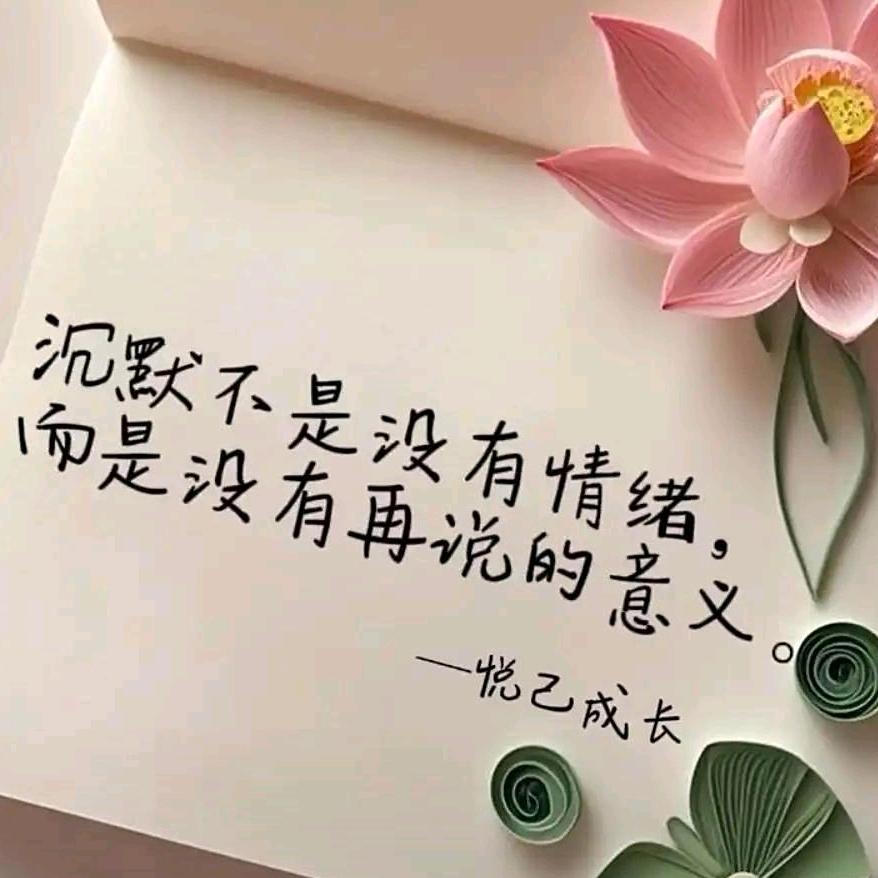 沉默不是没有情绪，
而是没有再说的意义。
一悦己成长